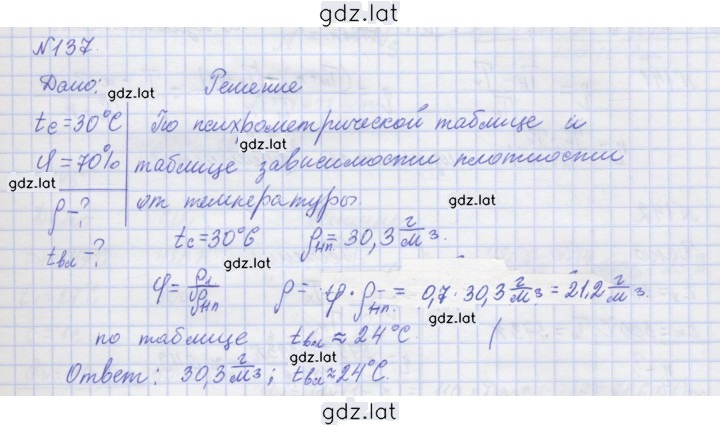 gdz.lat
№137.
Дано: Решение
gdz.lat
tс=30°С По психрометрической таблице и
gdz.lat
φ=70% таблице зависимости плотности
gdz.lat
ρ-? от температуры
gdz.lat
tс=30°С ρнп=30,3 г/м³.
tвл-?
gdz.lat
φ=ρ1/ρнп ρ=φ·ρнп=0,7·30,3 г/м³=21,2 г/м³.
gdz.lat
по таблице tвл≈24°С.
gdz.lat
Ответ: 30,3 г/м³; tвл≈24°С.
gdz.lat